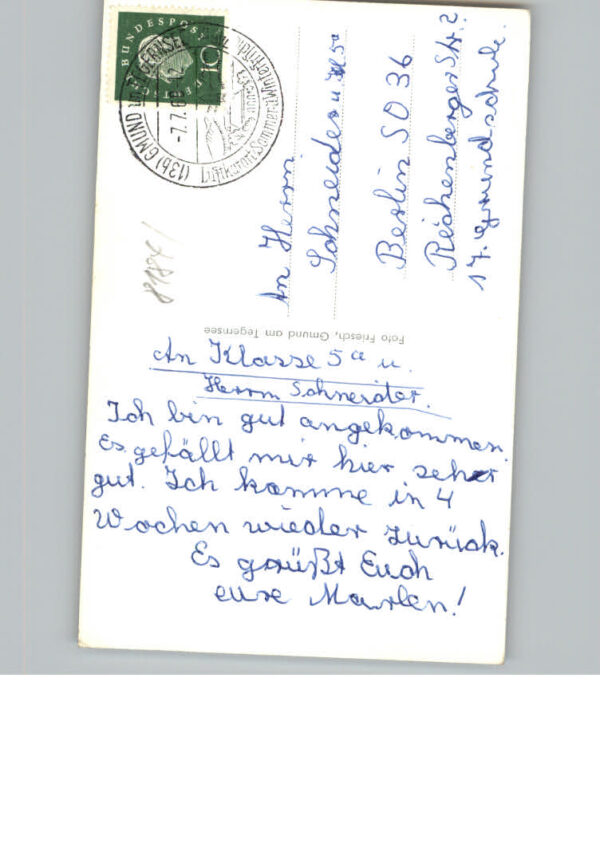 BUNDESPOST
10
(13b) GMUND
TEGERNSEE
-7.7.6
8187c/
An Herrn
Schneider u. Kl 5a
Berlin SO 36
Reichenberger Str. 2
17. Grundschule.
Foto Friesch, Gmund am Tegernsee
An Klasse 5a u.
Herrn Schneider.
Ich bin gut angekommen.
Es gefällt mir hier sehr
gut. Ich komme in 4
Wochen wieder zurück.
Es grüßt Euch
eure Marlen!